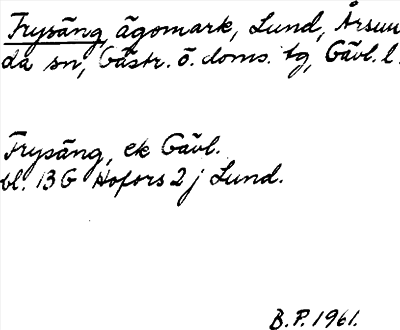 Frysäng, ägomark, Lund, Årsun
da sn, Gästr. ö. doms. tg, Gävl. l.
Frysäng, ek Gävl.
bl. 13 G Hofors 2 j Lund.
B.P. 1961.